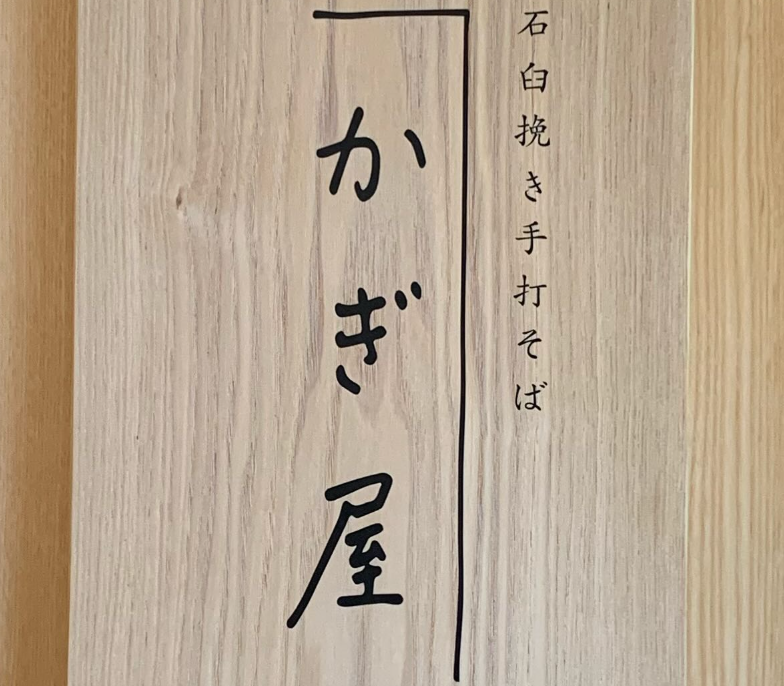 石臼挽き手打そば
かぎ屋